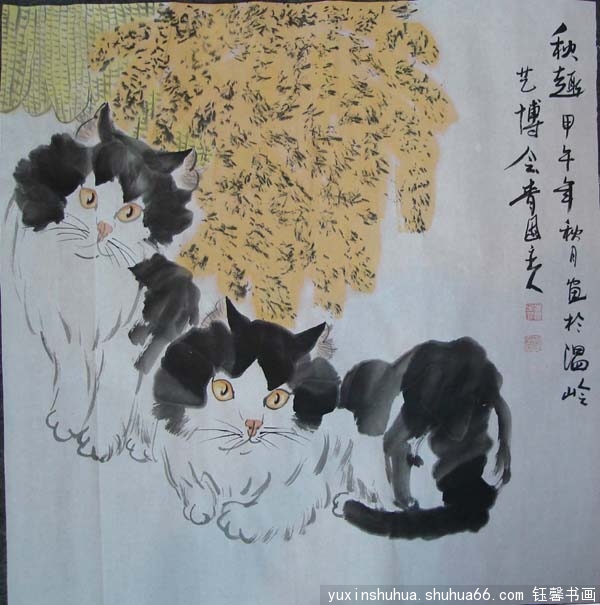 秋趣甲午年秋月画於温岭
艺博会青国主人
yuxinshuhua.shuhua66.com 钰馨书画